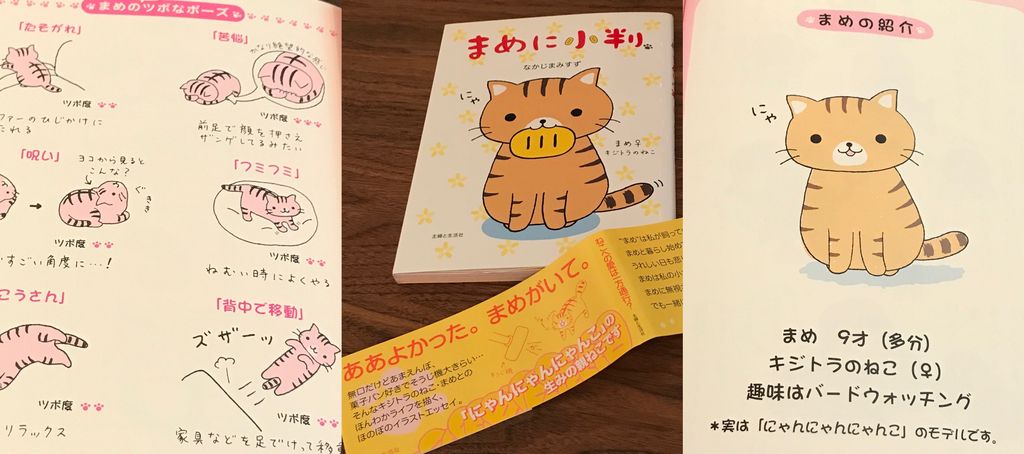 まめのツボなポーズ
「たそがれ」
ツボ度
ファーのひじかけに
たれる
「苦悩」
かなり絶望的な感じ
ツボ度
前足で顔を押さえ
ザンゲしてるみたい
「呪い」
ヨコから見ると
こんな?
ぐぎぎ
ツボ度
すごい角度に…!
「フミフミ」
ツボ度
ねむい時によくやる
こうさん」
ツボ度
リラックス
「背中で移動」
ズザーッ
ツボ度
家具などを足でけって移
まめに小判
なかじまみすず
にゃ
まめ♀
キジトラのねこ
主婦と生活社
ああよかった。まめがいて。
無口だけどあまえんぼ、
菓子パン好きでそうじ機大きらい…
そんなキジトラのねこ・まめとの
ほんわかライフを描く、
ほのぼのイラストエッセイ。
「にゃんにゃんにゃんこ」の
生みの親ねこです
ねこへの愛は一方通行?
"まめ"は私が飼って
まめと暮らし始め
うれしい日も悲し
まめは私の小
まめに無視
でも一緒
まめの紹介
にゃ
まめ 9才(多分)
キジトラのねこ(♀)
趣味はバードウォッチング
*実は「にゃんにゃんにゃんこ」のモデルです。